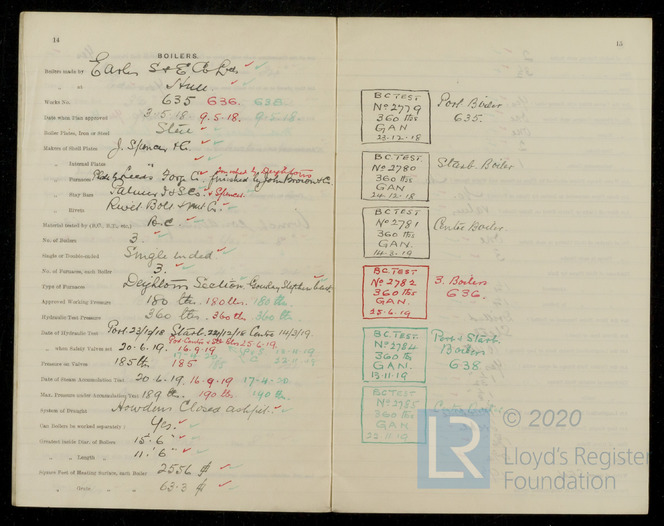 14
BOILERS.
Boilers made by Earles S & E Co Ltd
" at Hull
Works No. 635 636. 638
Date when Plan approved 3.5.18. 9.5.18. 9.5.18.
Boiler Plates, Iron or Steel Steel
Makers of Shell Plates J. Spencer & C.
" Internal Plates
" Furnaces Leeds Forge C. finished by John Brown & C.
" Stay Bars Palmers & Spencer
" Rivets Rivet Bolt & Nut C.
Material tested by (B.C., B.T., etc.) B.C.
No. of Boilers 3.
Single or Double-ended Single ended
No. of Furnaces, each Boiler 3.
Type of Furnaces Deightons Section
Approved Working Pressure 180 lbs. 180 lbs. 180 lbs.
Hydraulic Test Pressure 360 lbs. 360 lbs. 360 lbs
Date of Hydraulic Test Port 23/12/18 Starb. 24/12/18 Centre 14/3/19
25.6.19.
" when Safety Valves set 20.6.19. 16.9.19
17.4.20
Pressure on Valves 185 lbs 185 185
Date of Steam Accumulation Test 20.6.19. 16.9.19 17.4.20
Max. Pressure under Accumulation Test 189 lbs. 190 lbs. 190 lbs.
System of Draught Howdens Closed ashpit.
Can Boilers be worked separately Yes.
Greatest inside Diar. of Boilers 15.6"
" " Length 11.6"
Square Feet of Heating Surface, each Boiler 2556
" " Grate 63.3
15
B.C TEST
No 2779
360 lbs
G A N
23-12-18
Port Boiler
635.
B.C TEST.
No 2780
360 lbs
G A N
24-12-18
Starb. Boiler
B.C TEST
No 2781
360 lbs
G A N.
14-3-19
Center Boiler
B.C TEST
No 2782
360 lbs
G A N.
25-6-19
3. Boilers
636.
B.C TEST
No 2784
360 lbs
G A N.
13-11-19
Port & Starb.
Boilers
638
B.C TEST
No 2785
360 lbs
G A N
22-11-19
LR
© 2020
Lloyd's Register
Foundation